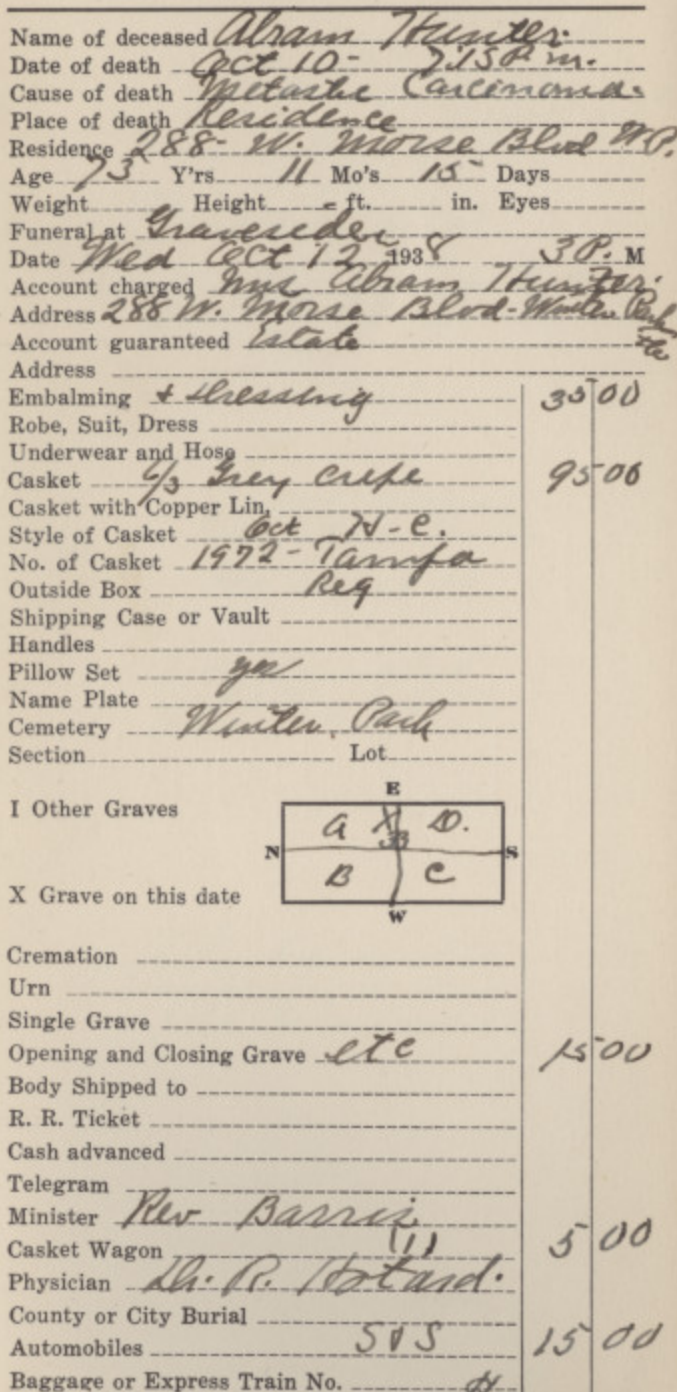 Name of deceased Abram Hunter.
Date of death Oct 10- 7.15 P.m.
Cause of death Metastic Carcinoma.
Place of death Residence
Residence 288- W. Morse Blvd W.P.
Age 73 Y'rs 11 Mo's 15 Days
Weight Height - ft. in. Eyes
Funeral at Graveside
Date Wed Oct 12 1938 3 P. M
Account charged Mrs Abram Hunter.
Address 288 W. Morse Blvd- Winter Park Fla
Account guaranteed Estate
Address
Embalming + Dressing 35 00
Robe, Suit, Dress
Underwear and Hose
Casket 6/3 Grey Crepe 95 00
Casket with Copper Lin.
Style of Casket Oct N-C.
No. of Casket 1972- Tampa
Outside Box Reg
Shipping Case or Vault
Handles
Pillow Set yes
Name Plate
Cemetery Winter Park
Section Lot
E
I Other Graves
A X D.
33
N S
B C
X Grave on this date
W
Cremation
Urn
Single Grave
Opening and Closing Grave etc 15 00
Body Shipped to
R. R. Ticket
Cash advanced
Telegram
Minister Rev Barris
Casket Wagon (1) 5 00
Physician Dr. R. Hotard.
County or City Burial
Automobiles S & S 15 00
Baggage or Express Train No.